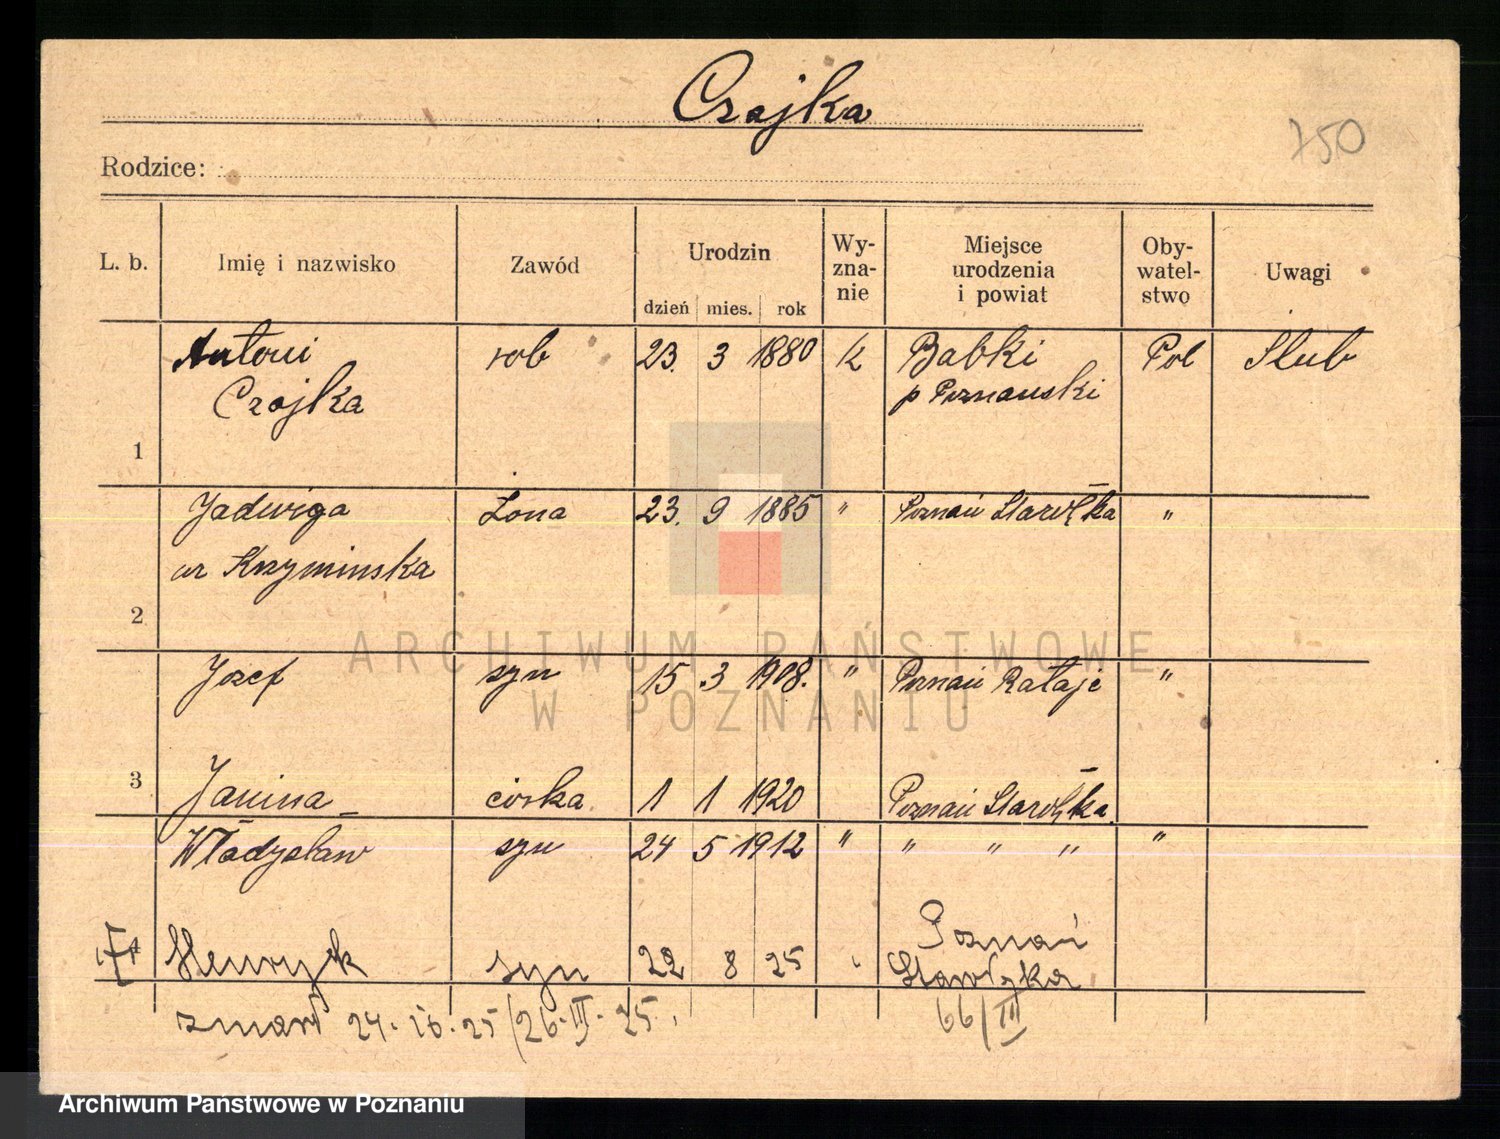 Czajka
750
Rodzice:
L. b. Imię i nazwisko Zawód Urodzin Wy-zna-nie Miejsce urodzenia i powiat Oby-watel-stwo Uwagi
dzień mies. rok
Antoni rob 23. 3 1880 k Babki Pol Slub
Czajka p Poznanski
1
Jadwiga żona 23. 9 1885 " Poznań Starołęka "
ur Krzyminska
2
Jozef syn 15 3 1908. " Poznań Rataje "
3 Janina córka 1 1 1920 Poznań Starołęka
Władysław syn 24 5 1912 " " " " "
Poznań
Henryk syn 22 8 25 " Starołęka
zmarł 24. 10. 25 (26. III. 25.
66/III
ARCHIWUM PAŃSTWOWE
W POZNANIU
Archiwum Państwowe w Poznaniu